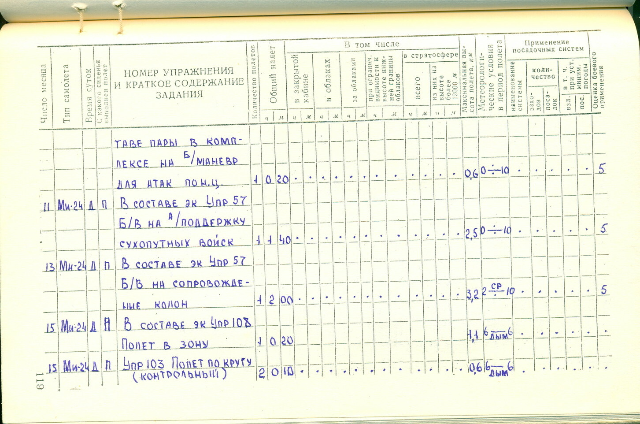 Число месяца
Тип самолета
Время суток
НОМЕР УПРАЖНЕНИЯ
И КРАТКОЕ СОДЕРЖАНИЕ
ЗАДАНИЯ
Количество полетов
Общий налет
В том числе
в закрытой кабине
в облаках
за облаками
в стратосфере
всего
Метеорологические условия в период полета
Применение
посадочных систем
наименование системы
количество
Оценка боевого применения
ч м ч м ч м ч м ч м ч м ч м
ТАВЕ ПАРЫ В КОМП-
ЛЕКСЕ НА Б/МАНЕВР
ДЛЯ АТАК ПО Н.Ц. 1 0 20 0,6 0÷10 5
11 Ми-24 Д П В СОСТАВЕ ЭК УПР 57
Б/В НА А/ПОДДЕРЖКУ
СУХОПУТНЫХ ВОЙСК 1 1 40 2,5 0÷10 5
13 Ми-24 Д П В СОСТАВЕ ЭК УПР 57
Б/В НА СОПРОВОЖДЕ-
НИЕ КОЛОН 1 2 00 3,2 2 СР 10 5
15 Ми-24 Д В СОСТАВЕ ЭК УПР 108
ПОЛЕТ В ЗОНУ 1 0 20 1,1 6 ДЫМ 6
15 Ми-24 Д П УПР 103 ПОЛЕТ ПО КРУГУ
(КОНТРОЛЬНЫЙ) 2 0 10 0,6 6 ДЫМ 6
119